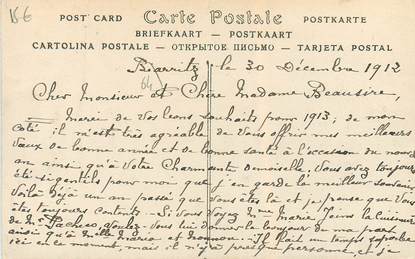 156
POST CARD Carte Postale POSTKARTE
BRIEFKAART — POSTKAART
CARTOLINA POSTALE — ОТКРЫТОЕ ПИСЬМО — TARJETA POSTAL
Biarritz, le 30 Décembre 1912
64
Cher Monsieur et Chère Madame Beausire,
Merci de vos bons souhaits pour 1913; de mon
coté il m'est très agréable de vous offrir mes meilleurs
vœux de bonne année et de bonne santé à l'occasion du nouvel
an ainsi qu'à votre Charmante Demoiselle, Vous avez toujours
été si gentils pour moi que j'en garde le meilleur souvenir
Voilà déjà un an passé que vous êtes là et je pense que vous
êtes toujours contents. Si vous voyez Mme Marie la cuisinière
de Mr Pacheco, voulez-vous lui donner le bonjour de ma part
ainsi qu'à Mlle Maria et Il fait un temps superbe
ici en ce moment, mais il n'y a presque personne, et je